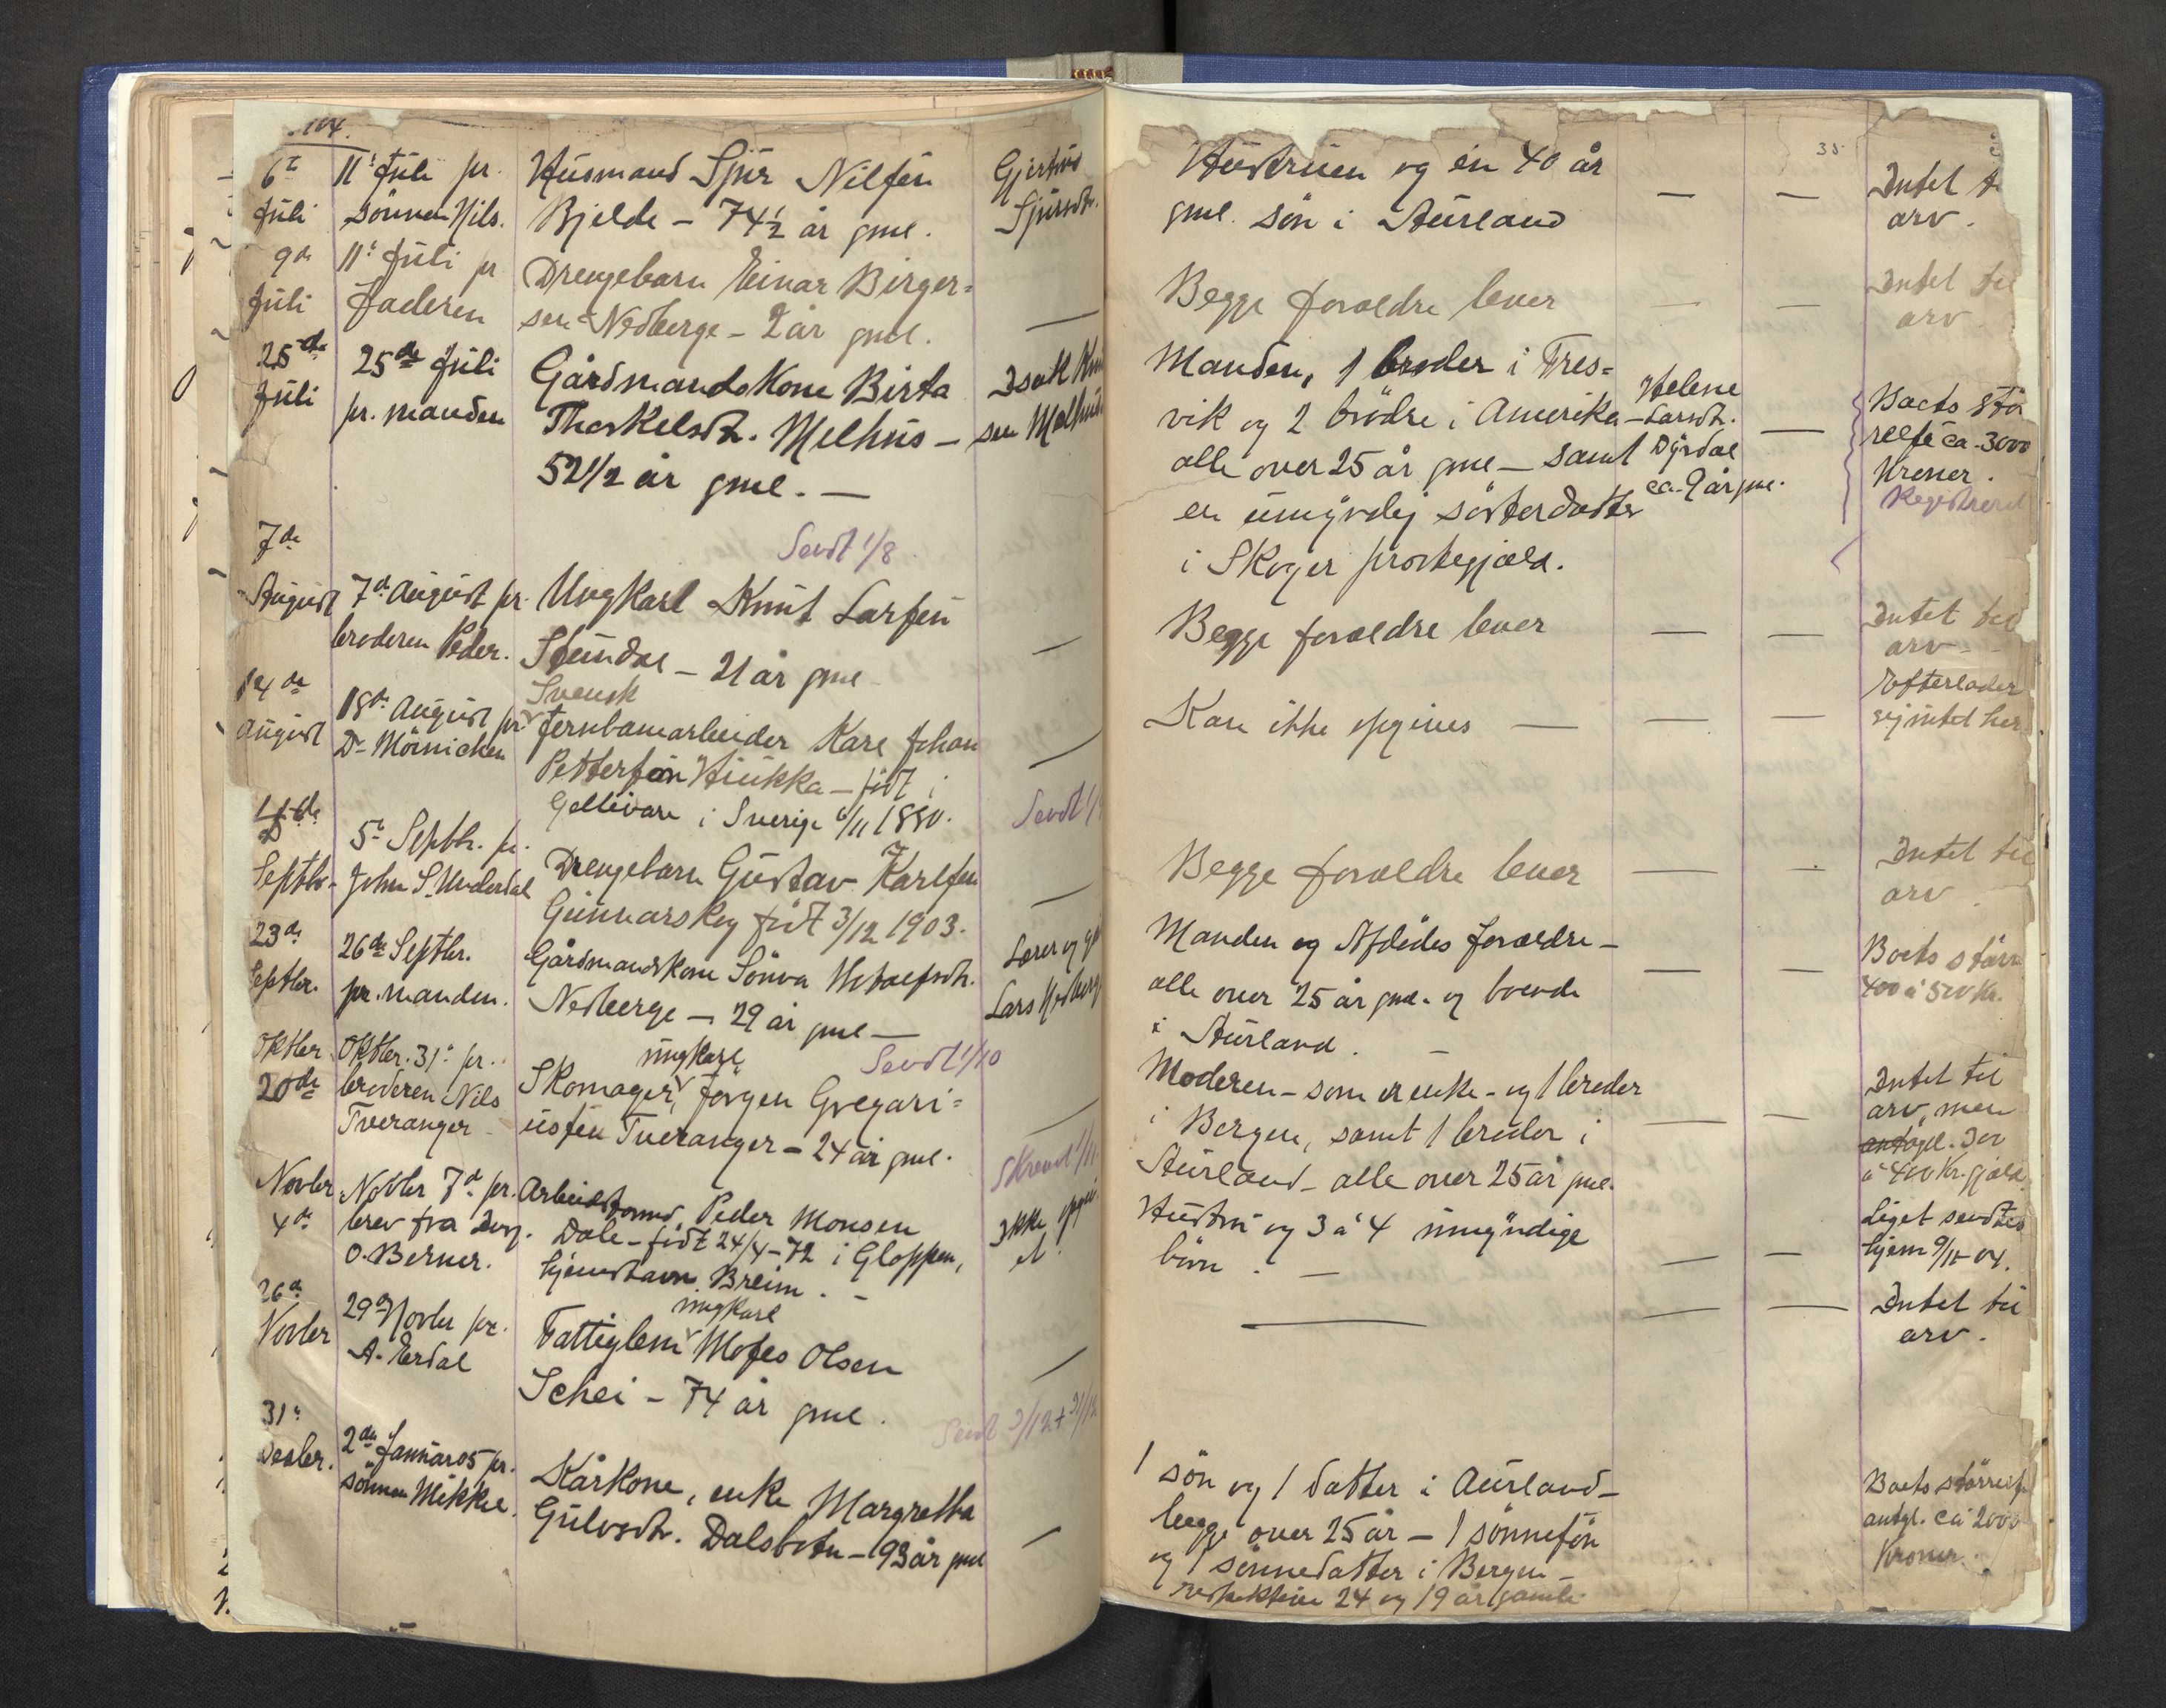 104.
6te 11te Juli pr. Husmand Sjur Nilsen Gjertrud
Juli sönnen Nils. Bjelde - 74 1/2 år gml. Sjursdtr.
9de 11te Juli pr. Drengebarn Einar Birger=
Juli Faderen sen Nedberge - 2 år gml. —
25de 25de Juli Gårdmandskone Birta Isak Knu
Juli pr. manden Thorkelsdtr. Melhus - sen Melhus
52 1/2 år gml. —
Sendt 1/8.
7de
August 7de August pr. Ungkarl Knut Larsen —
broderen Peder. Stundal - 21 år gml.
14de Svensk
August 18de August pr. Jernbanearbeider Karl Johan —
Dr. Mörnichen Petterson Hukka - födt i
Gellivare i Sverige 6/11 1880. Sendt 1/
1ste
Septbr. 5te Septbr. pr. Drengebarn Gustav Karlsen —
John S. Underdal Gunnarskog födt 3/12 1903.
23de 26de Septbr. Gårdmandskone Sönva Lærer og
Septbr. pr. manden. Nedberge - 29 år gml — Lars Nedberg
Sendt 1/10
Oktbr. Oktbr. 31te pr. ungkarl
20de broderen Nils Skomager, Jörgen Gregari=
Tveranger - iusen Tveranger - 24 år gml. —
Novbr Novbr 7de pr. Arbeidsmand Peder Monsen Ikke opgiv
4de brev fra Ing. Dale - födt 24/4-72 i Gloppen, et
O. Berner. hjemstavn Breim. -
26de ungkarl
Novbr 29de Novbr pr. Fattiglem Moses Olsen —
A. Erdal Schei - 74 år gml.
Sendt 3/12 + 31/12
31te
Decbr. 2den Januar 05 pr. Kårkone, enke Margretha
sönnen Mikkel. Gulvsdtr. Dalsbotn - 93 år gml —
35
Hustruen og en 40 år — — Intet ti
gml. sön i Aurland arv.
Begge forældre lever — — Intet til
arv.
Manden, 1 broder i Fres= Helene
vik og 2 brödre i Amerika - Larsdtr. — Boets stör
alle over 25 år gml - samt Dyrdal relse ca. 3000
en umyndig sösterdatter ca. 9 år gml. Kroner.
i Skoger prestegjæld. Registreret
Begge forældre lever — — Intet til
arv -
Kan ikke opgives — — — Efterlader
sig intet her
Begge forældre lever — — Intet til
arv.
Manden og Afdödes forældre - Boets större
alle over 25 år gml. og boende — — 400 à 500 Kr.
i Aurland. —
Moderen - som er enke - og 1 broder Intet til
i Bergen, samt 1 broder i — — arv, men
Aurland - alle over 25 år gml. antagel. 300
à 400 Kr. gjæld.
Hustru og 3 à 4 umyndige Liget sendtes
börn. — — — hjem 9/11-04.
— — — Intet til
arv.
1 sön og 1 datter i Aurland - Boets störrelse
begge over 25 år - 1 sönnesön antgl. ca 2000
og 1 sönnedatter i Bergen - Kroner.
respektive 24 og 19 år gamle